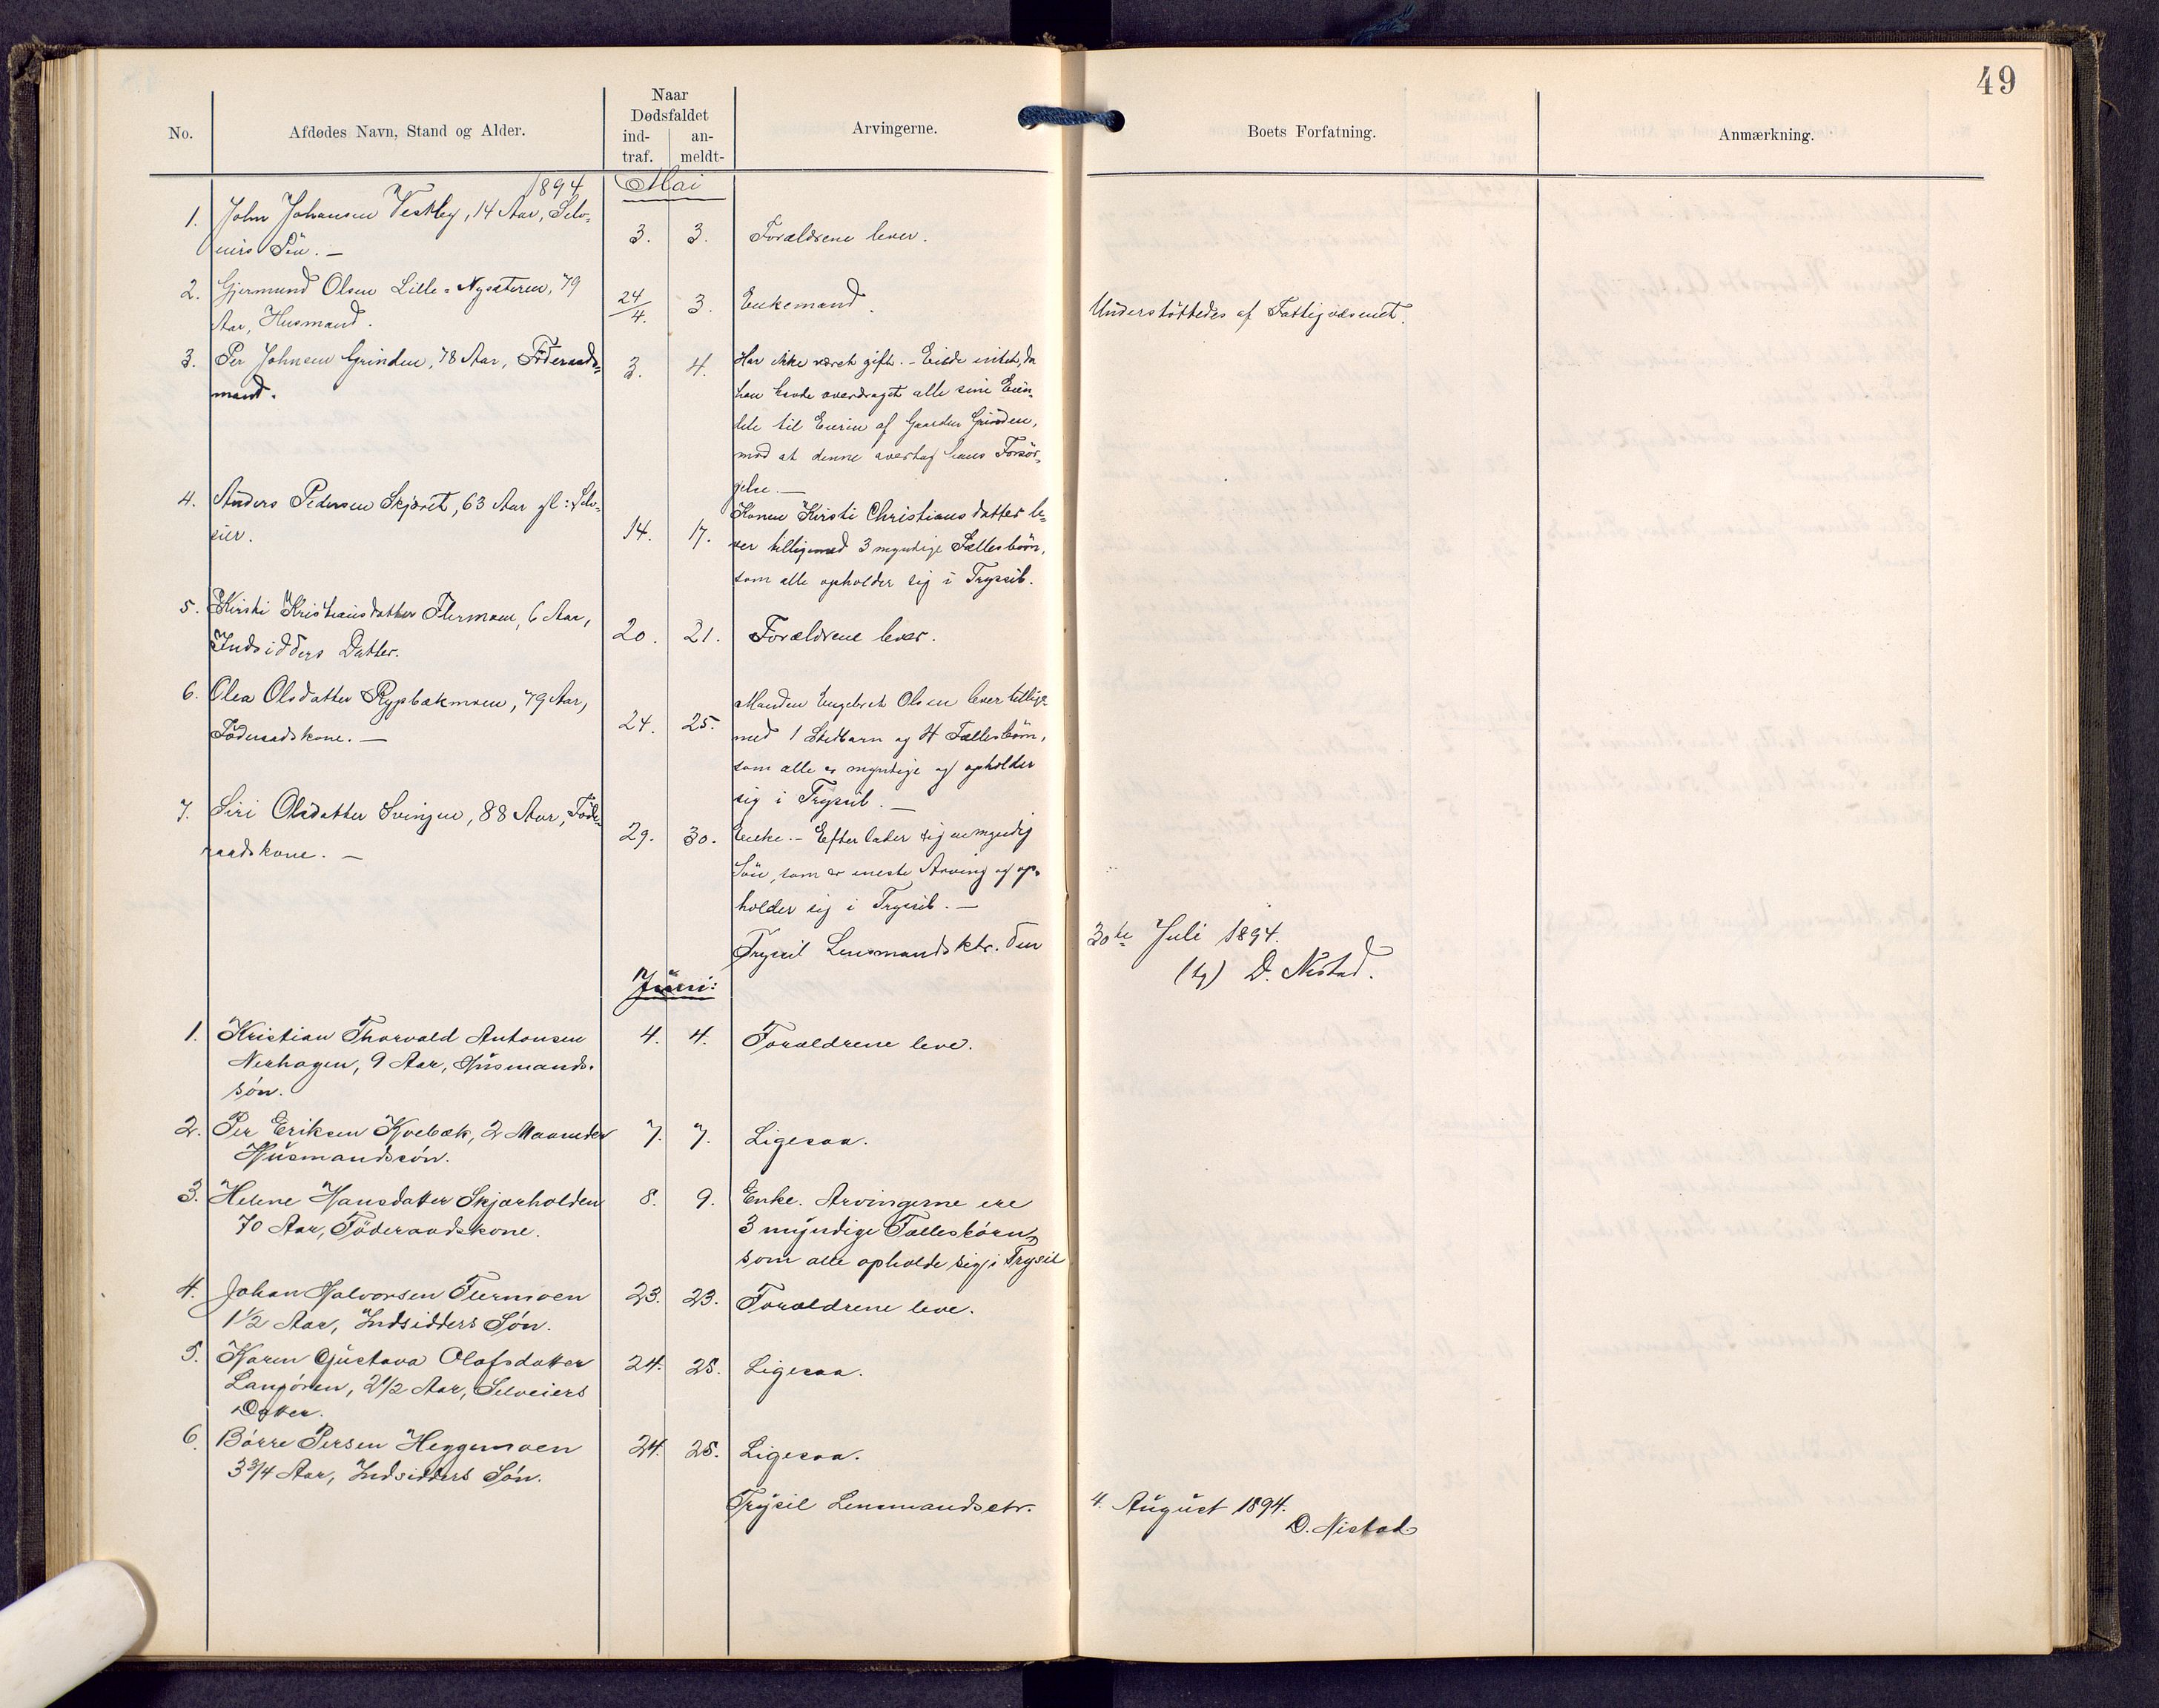 49
No.
Afdødes Navn, Stand og Alder.
Naar
Dødsfaldet
ind-
traf.
an-
meldt-
Arvingerne.
Boets Forfatning.
Anmærkning.
1894 Mai
1. John Johansen Vestby, 14 Aar, Selv-
eiers Sön. —
3. 3. Forældrene lever.
2. Gjermund Olsen Lille-Nysæteren, 79
Aar, Husmand.
24/4. 3. Enkemand.
Understöttedes af Fattigvæsenet.
3. Per Johnsen Grinden, 78 Aar, Föderaads-
mand.
3. 4. Har ikke været gift. - Eiede intet, da
han havde overdraget alle sine Eien-
dele til Eieren af Gaarden Grinden,
mod at denne overtog hans Forsör-
gelse. —
4. Anders Pedersen Skjæret, 63 Aar gl: Selv-
eier.
14. 17. Konen Kirsti Christiansdatter le-
ver tilligemed 3 myndige Fællesbörn,
som alle opholder sig i Trysil.
5. Kirsti Kristiansdatter Flermoen, 6 Aar,
Indsidders Datter.
20. 21. Forældrene lever.
6. Olea Olsdatter Rypbækmoen, 79 Aar,
Föderaadskone. —
24. 25. Manden Engebret Olsen lever tillige-
med 1 Stedbarn og 4 Fællesbörn,
som alle er myndige og opholder
sig i Trysil. —
7. Siri Olsdatter Svingen, 88 Aar, Föde-
raadskone. —
29. 30. Enke. - Efterlader sig en myndig
Sön, som er eneste Arving og op-
holder sig i Trysil. —
Trysil Lensmandsktr. den 30te Juli 1894.
D. Nistad.
Juni:
1. Kristian Thorvald Antonsen
Nerhagen, 9 Aar, Husmands-
søn.
4. 4. Forældrene leve.
2. Per Eriksen Kvebæk, 2 Maaneder
Husmandssøn.
7. 7. Ligesaa.
3. Helene Hansdatter Skjærholden
70 Aar, Föderaadskone.
8. 9. Enke. Arvingerne ere
3 myndige Fællesbørn,
som alle opholde sig i Trysil
4. Johan Halvorsen Flermoen
1 1/2 Aar, Indsidders Søn.
23. 23. Forældrene leve.
5. Karen Gustava Olafsdatter
Langören, 2 1/2 Aar, Selveiers
Datter.
24. 25. Ligesaa.
6. Börre Persen Heggemoen
3 3/4 Aar, Indsidders Søn.
24. 25. Ligesaa.
Trysil Lensmandsctr. 4. August 1894.
D. Nistad